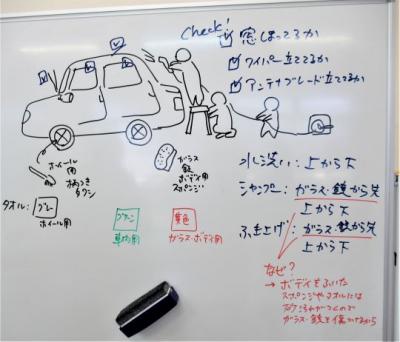 Check!
窓しまってるか
ワイパー立ててるか
アンテナブレード立ててるか
ホイール用
柄つき
タワシ
ガラス
鏡
ボディ用
スポンジ
水洗い: 上から下
シャンプー: ガラス・鏡から先
上から下
ふき上げ: ガラス・鏡から先
上から下
タオル:
グレー
ホイール用
グリーン
車内用
黄色
ガラス・ボディ用
なぜ?
→ ボディをふいた
スポンジやタオルには
ガラス・鏡を傷つけるから